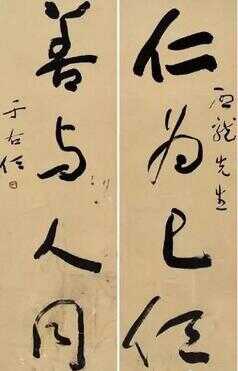 仁为己任
龍先生
善与人同
于右任